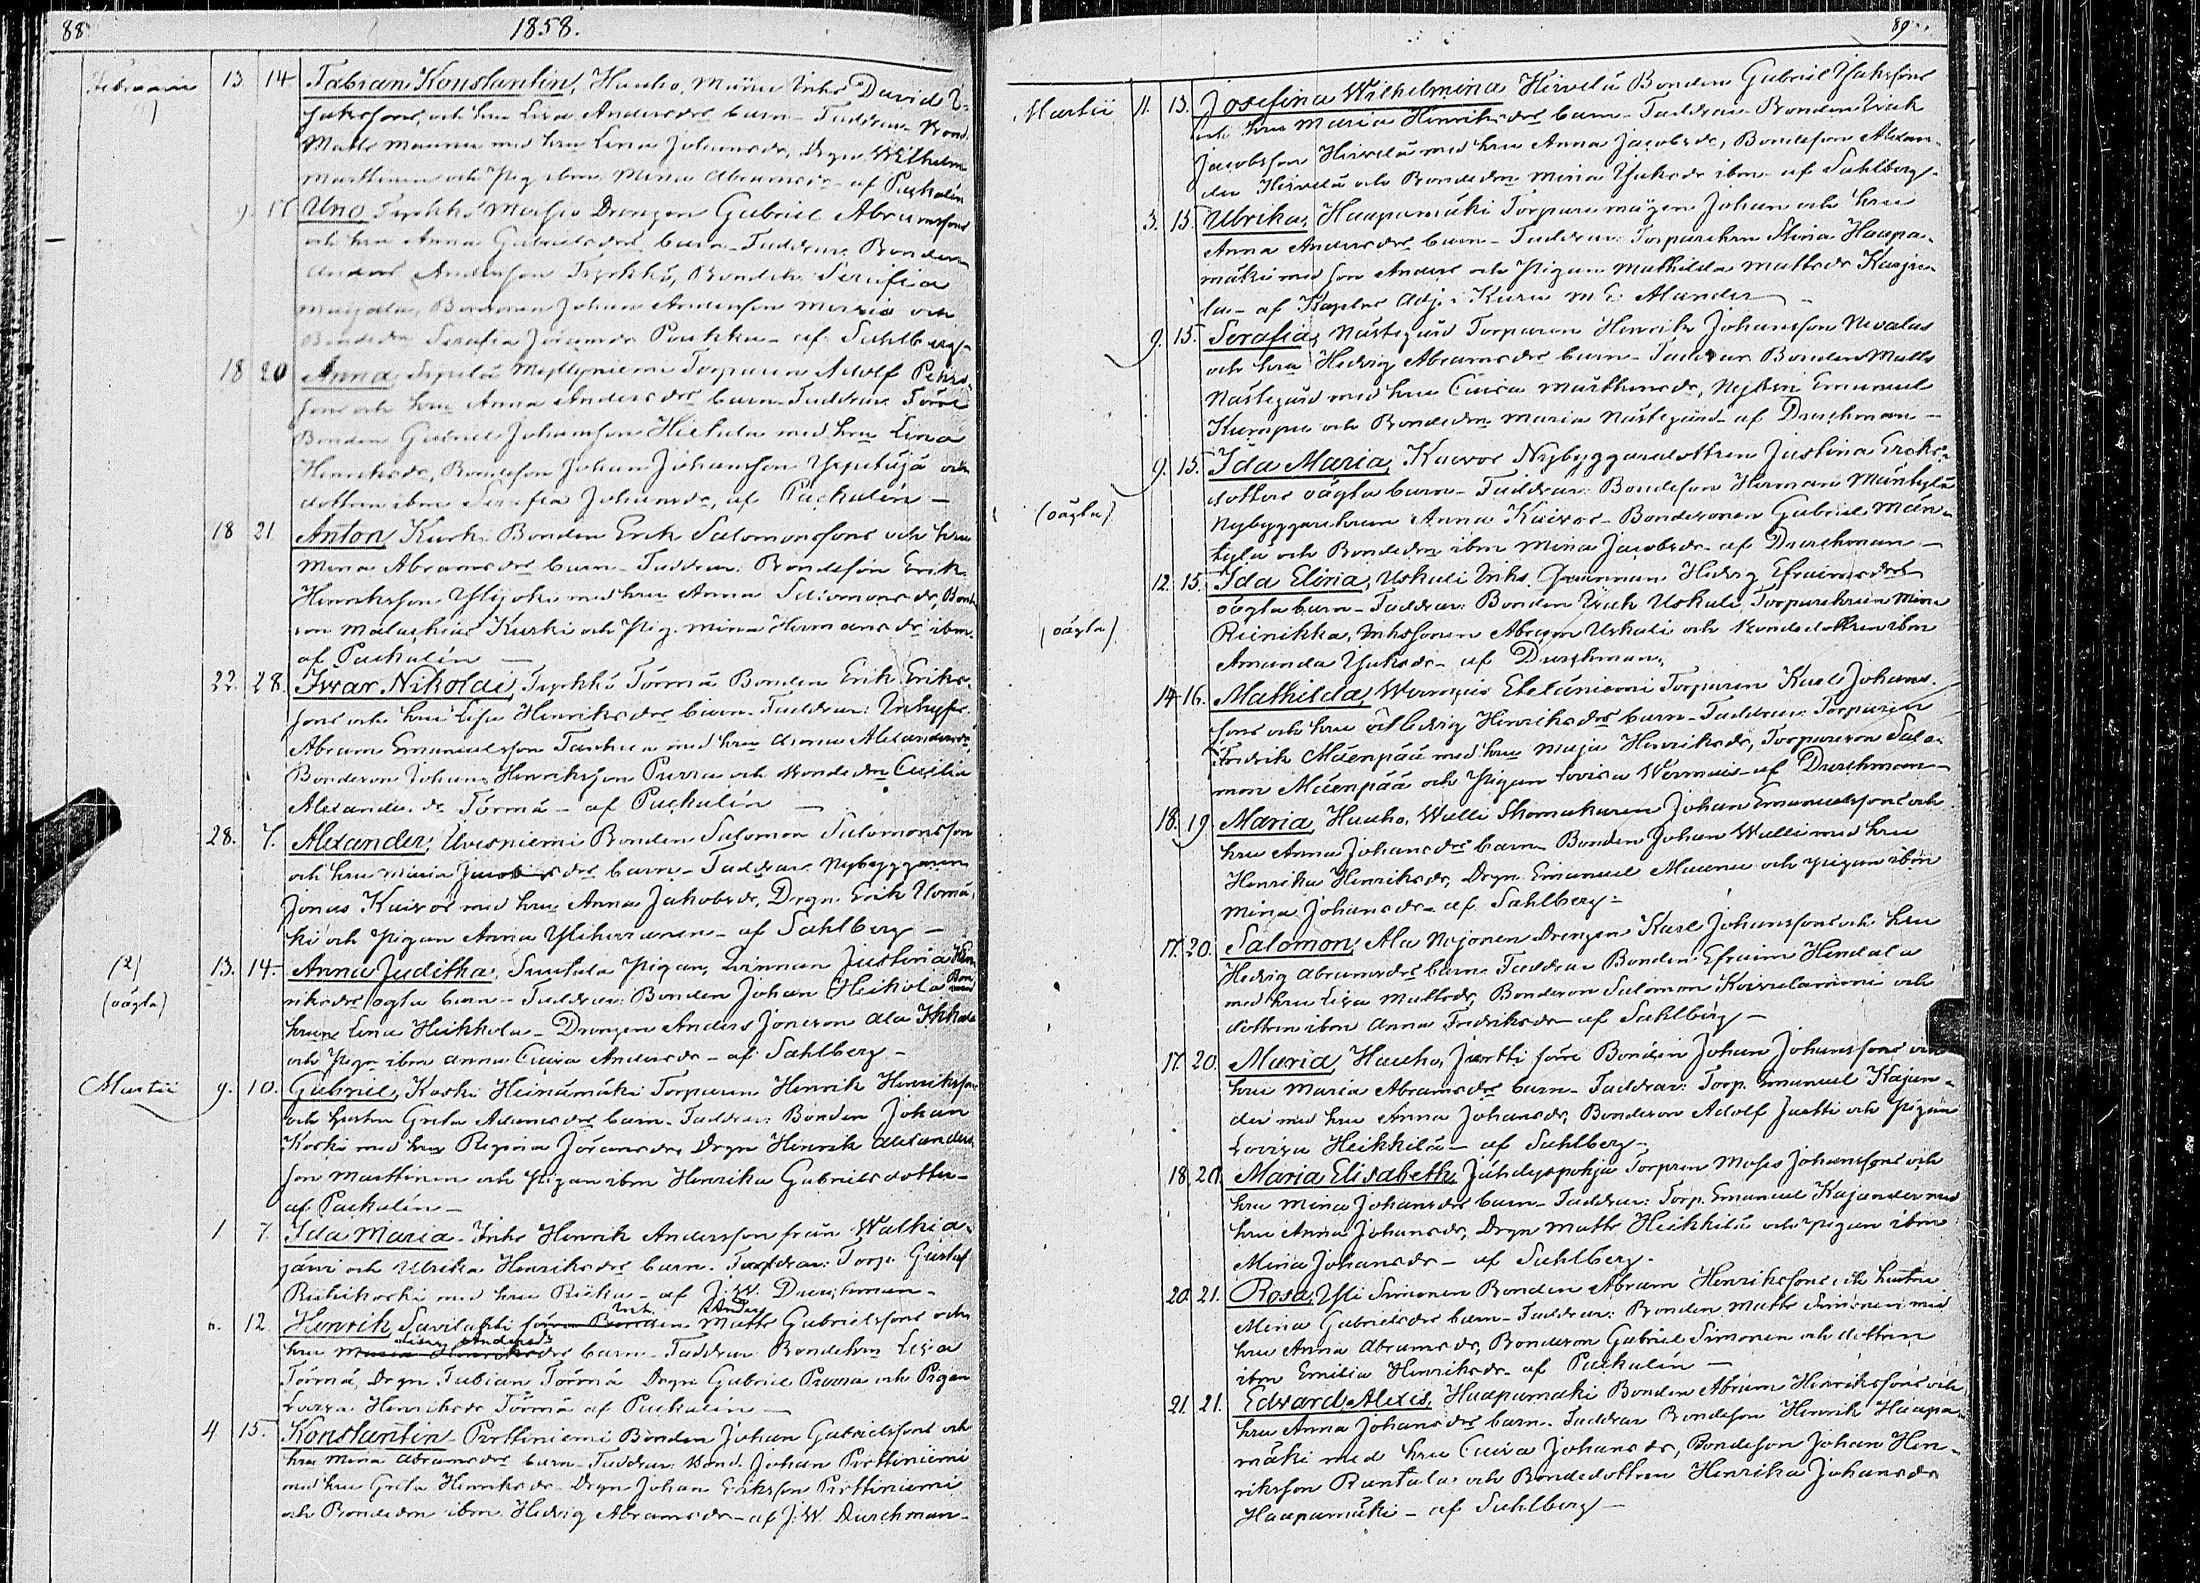 88
1858.
Februarii 13 14 Fabian Konstantin, Hauho, Inhs David
sons, och hru Lisa Andersdrs barn - Faddrar Bond.
Matts Maunu med hru Lena Johansdr, Drgn Wilhelm
Marttinen och Pig. ibm Mina Abramsdr - af Puckalén
9. 17 Uno Tyrkkö Drengen Gabriel Abramsons
och hru Anna Gabrielsdrs barn - Faddrar: Bonden
Anders Andersson Tyrkkö, Serafia
Johan Andersson och
Serafia - af Sahlberg
18 20 Anna, Torparen Adolf Pehrs-
sons och hru Anna Andersdrs barn - Faddrar Förre
Bonden Gabriel Johansson Hietala med hru Lena
Henriksdr, Bondeson Johan Johansson och
dottren ibm Serafia Johansdr, af Puckalén -
18 21 Anton, Kurki Bonden Erik Salomonssons och hru
Mina Abramsdrs barn - Faddrar: Bondeson Erik
Henriksson Ylijoki med hru Anna Salomonsdr, Bonde
son Malachias Kurki och Pig. Mina Hermansdr ibm.
af Puckalén -
22. 28. Iwar Nikolai, Tyrkkö Törmä Bonden Erik Eriks-
sons och hru Lisa Henriksdrs barn - Faddrar:
Abram Emanuelsson med hru Anna Alexandersdr,
Bondeson Johan Henriksson Purra och Bondedrn Cecilia
Alexandersdr Törmä - af Puckalén -
28. 7. Alexander, Uvesniemi Bonden Salomon Salomonsson
och hru Maria Jacobsdrs barn - Faddrar Nybyggaren
Jonas Kaivos med hru Anna Jakobsdr, Drgn. Erik
ki och Pigan Anna - af Sahlberg -
(2) (oägta) 13. 14. Anna Juditha, Suutala Pigan, qvinnan Justina Hen
riksdrs oägta barn - Faddrar: Bonden Johan Heikola med
hrun Lena Heikkola - Drengen Anders Jonsson Ala Ikkala
och Pign ibm Anna Caisa Andersdr - af Sahlberg -
Martii 9. 10. Gabriel, Koski Heinämäki Torparen Henrik Henrikssons
och hustru Greta Adamsdrs barn - Faddrar: Bonden Johan
Koski med hru Regina Göransdr, Drgn Henrik Alexanders
son Marttinen och Pigan ibm Henrika Gabrielsdotter -
af Puckalén -
1 7. Ida Maria - Inhs Henrik Andersson från Walkia-
järvi och Ulrika Henriksdrs barn. Faddrar: Torp. Gustaf
med hru - af J. W. Durchman -
n. 12. Henrik, Savilahti förre Bonden Inh. Matts Gabrielssons och
hru Maria Henriksdrs Lisa Andersdr barn - Faddrar Bondehru Lisa
Törmä, Drgn Fabian Törmä Drgn Gabriel Purra och Pigan
Lovisa Henriksdr Törmä af Puckalén -
4 15. Konstantin - Pirttiniemi Bonden Johan Gabrielssons och
hru Mina Abramsdrs barn - Faddrar Bond. Johan Pirttiniemi
med hru Greta Henriksdr - Drgn Johan Eriksson Pirttiniemi
och Bondedrn ibm. Hedvig Abramsdr - af J. W. Durchman -
89.
Martii 11. 13. Josefina Wilhelmina, Hirvelä Bonden Gabriel Isakssons
och hru Maria Henriksdrs barn - Faddrar Bonden Isak
Jacobsson Hirvelä med hru Anna Jacobsdr, Bondeson Alexan-
der Hirvelä och Bondedrn Mina Isaksdr ibm - af Sahlberg -
3. 15. Ulrika, Haapamäki Torparemågen Johan och hru
Anna Andersdrs barn - Faddrar: Torparehru Stina Haapa-
mäki med son Anders och Pigan Mathilda Mattsdr
- af Adj. i Kuru M. E. Alander -
9. 15. Serafia, Nästegård Torparen Henrik Johansson Nevalas
och hru Hedvig Abramsdrs barn - Faddrar Bonden Matts
Nästegård med hru Caisa Marttinsdr, Emanuel
och Bondedrn Maria Nästegård - af Durchman -
(oägta) 9. 15. Ida Maria, Kaivos Nybyggaredottren Justina Eriks-
dotters oägta barn - Faddrar: Bondeson Herman Mäntylä
Nybyggarehrun Anna Kaivos - Bondesonen Gabriel Män-
tylä och Bondedrn ibm Mina Jacobsdr - af Durchman -
(oägta) 12. 15. Ida Elina, Uskali Inhs Qvinnan Hedvig Efraimsdrs
oägta barn - Faddrar: Bonden Isak Uskali, Torparehrun Mina
Riinikka, Inhssonen Abram Uskali och Bondedottren ibm
Amanda Isaksdr - af Durchman.
14 16. Mathilda, Wermäis Eteläniemi Torparen Karl Johans-
sons och hru Hedvig Henriksdrs barn - Faddrar: Torparen
Fredrik Mäenpää med hru Maja Henriksdr, Torpareson Salo-
mon Mäenpää och Pigan Lovisa Wermäis - af Durchman -
18. 19 Maria, Hauho, Walli Skomakaren Johan Emanuelssons och
hru Anna Johansdrs barn - Bonden Johan Walli med hru
Henrika Henriksdr, Drgn Emanuel Maunu och pigan ibm
Mina Johansdr - af Sahlberg -
17. 20. Salomon, Ala Nojonen Drengen Karl Johanssons och hru
Hedvig Abramsdrs barn Faddrar Bonden Efraim
med hru Lisa Mattsdr, Bondeson Salomon och
dottren ibm Anna Fredriksdr - af Sahlberg -
17. 20. Maria, Hauho, Juotti förre Bonden Johan Johanssons och
hru Maria Abramsdrs barn - Faddrar: Torp. Emanuel Kajan-
der med hru Anna Johansdr, Bondeson Adolf Juotti och Pigan
Lovisa Heikkilä - af Sahlberg -
18. 20. Maria Elisabeth, Jähdyspohja Torpren Moses Johanssons och
hru Mina Johansdrs barn - Faddrar: Torp. Emanuel Kajander med
hru Anna Johansdr, Drgn Matts Heikkilä och Pigan ibm
Mina Johansdr - af Sahlberg -
20. 21. Rosa, Yli Simonen Bonden Abram Henrikssons och hustru
Mina Gabrielsdrs barn - Faddrar: Bonden Matts Simonen med
hru Anna Abramsdr, Bondeson Gabriel Simonen och dottren
ibm Emilia Henriksdr - af Puckalén -
21. 21. Edvard Alexis, Haapamäki Bonden Abram Henrikssons och
hru Anna Johansdrs barn - Faddrar Bondeson Henrik Haapa-
mäki med hru Caisa Johansdr, Bondeson Johan Hen-
riksson Rantala och Bondedottren Henrika Johansdr
Haapamäki - af Sahlberg -